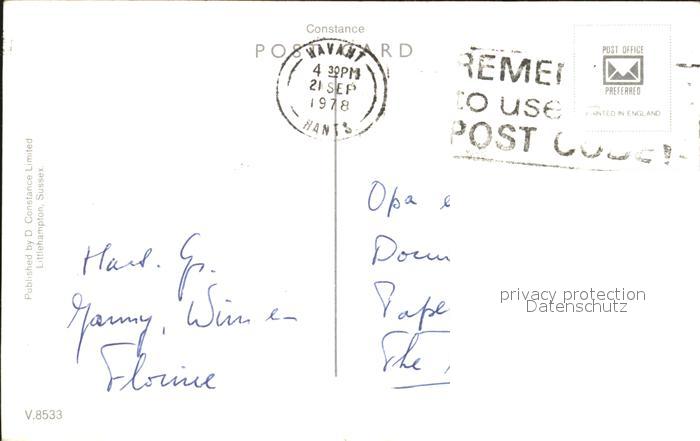 Constance
POST CARD
HAVANT
4 30PM
21 SEP
1978
HANTS
REMEM
to use
POST CODE
POST OFFICE
PREFERRED
PRINTED IN ENGLAND
Published by D. Constance Limited
Littlehampton, Sussex.
Hart. Gr.
Wim e
Florine
V.8533
Opa e
Docum
Pape
The
privacy protection
Datenschutz